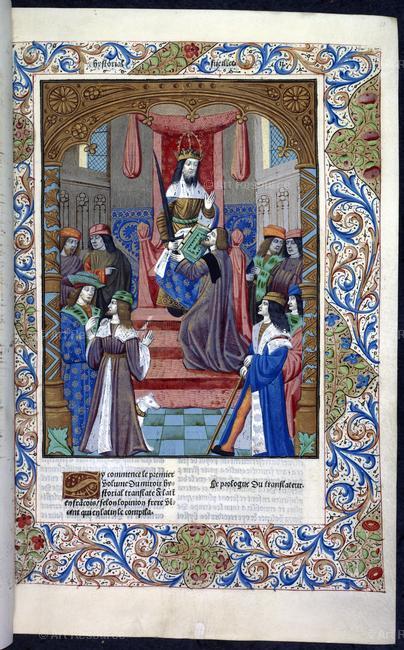 hystorial
fueillet
y commence le premier
volume du miroir hy
storial translate de lati
en frācois / selon lopinio frere Vi
cent qui en latin le compila.
Le prologue du translateur.
© Art Resource
© Art Resource